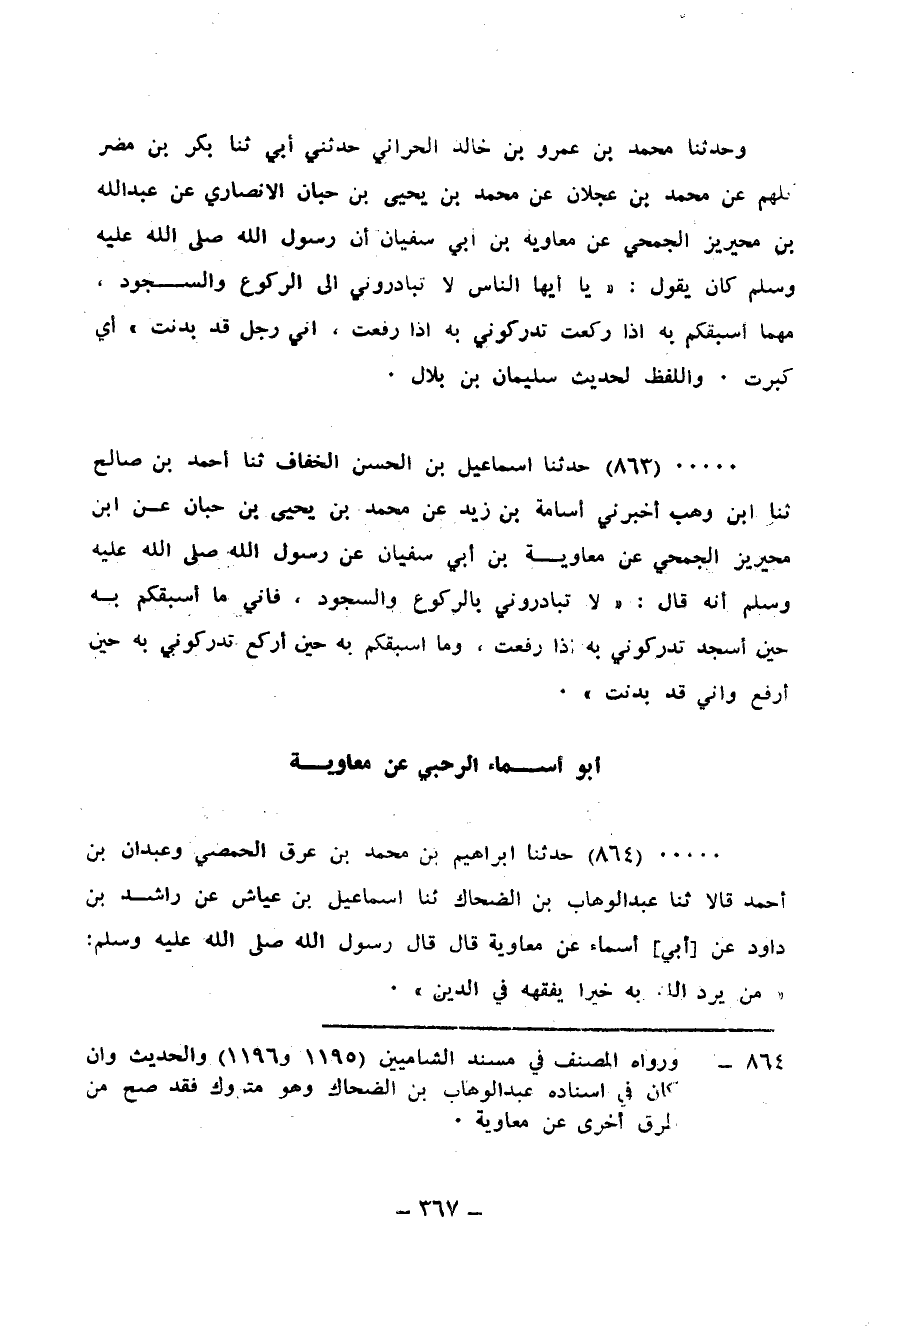 وحدثنا محمد بن عمرو بن خالد الحراني حدثني أبي ثنا بكر بن مضر
كلهم عن محمد بن عجلان عن محمد بن يحيى بن حبان الانصاري عن عبدالله
بن محيريز الجمحي عن معاوية بن أبي سفيان أن رسول الله صلى الله عليه
وسلم كان يقول : « يا أيها الناس لا تبادروني الى الركوع والسـجود ،
مهما أسبقكم به اذا ركعت تدركوني به اذا رفعت ، اني رجل قد بدنت » أي
كبرت ٠ واللفظ لحديث سليمان بن بلال ٠
٠٠٠٠٠ (٨٦٣) حدثنا اسماعيل بن الحسن الخفاف ثنا أحمد بن صالح
ثنا ابن وهب أخبرني أسامة بن زيد عن محمد بن يحيى بن حبان عـن ابن
محيريز الجمحي عن معاويـة بن أبي سفيان عن رسول الله صلى الله عليه
وسلم أنه قال : « لا تبادروني بالركوع والسجود ، فاني ما أسبقكم بـه
حين أسجد تدركوني به اذا رفعت ، وما اسبقكم به حين أركع تدركوني به حين
أرفع واني قد بدنت » ٠
أبو أسـماء الرحبي عن معاويـة
٠٠٠٠٠ (٨٦٤) حدثنا ابراهيم بن محمد بن عرق الحمصي وعبدان بن
أحمد قالا ثنا عبدالوهاب بن الضحاك ثنا اسماعيل بن عياش عن راشـد بن
داود عن [أبي] أسماء عن معاوية قال قال رسول الله صلى الله عليه وسلم:
« من يرد الله به خيرا يفقهه في الدين » ٠
٨٦٤ ــ ورواه المصنف في مسند الشاميين (١١٩٥ و١١٩٦) والحديث وان
كان في اسناده عبدالوهاب بن الضحاك وهو متروك فقد صح من
طرق أخرى عن معاوية ٠
ـ ٣٦٧ ـ